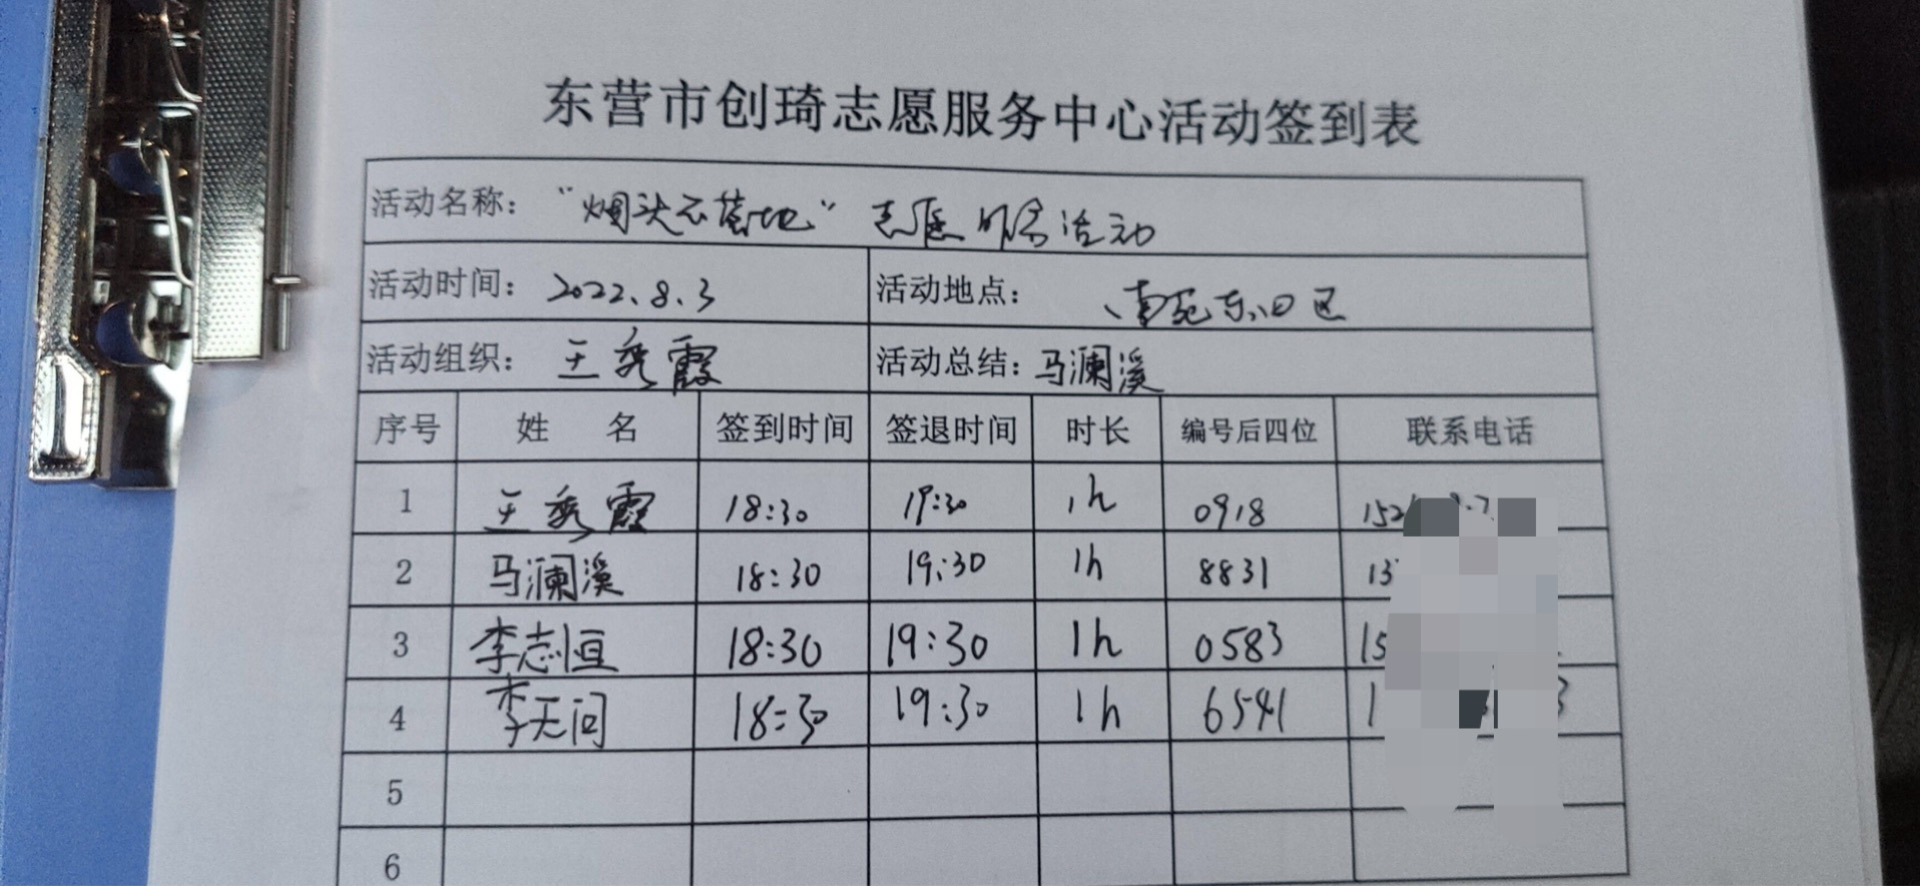 东营市创琦志愿服务中心活动签到表
活动名称：“烟头不落地”志愿服务活动
活动时间：2022.8.3 活动地点：南苑东区
活动组织：王秀霞 活动总结：马澜溪
序号 姓 名 签到时间 签退时间 时长 编号后四位 联系电话
1 王秀霞 18:30 19:30 1h 0918 152
2 马澜溪 18:30 19:30 1h 8831 13
3 李志恒 18:30 19:30 1h 0583 15
4 李天问 18:30 19:30 1h 6541 1
5
6